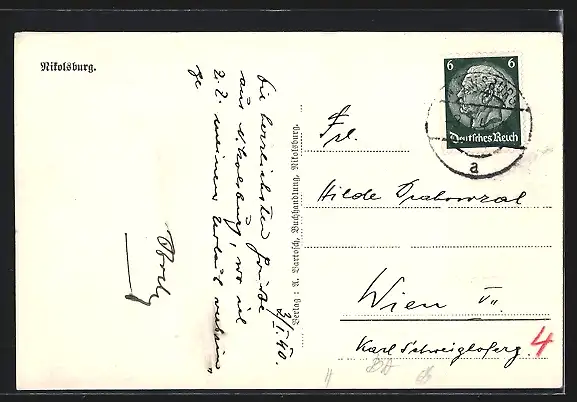 Nikolsburg.
2/I.40.
Die herzlichsten Grüße
aus Nikolsburg, wo ich
z. Z. meinen Urlaub
Verlag: A. Bartosch, Buchhandlung, Nikolsburg.
6 6
Deutsches Reich
a
Frl.
Hilde
Wien
Karl Schweighoferg. 4